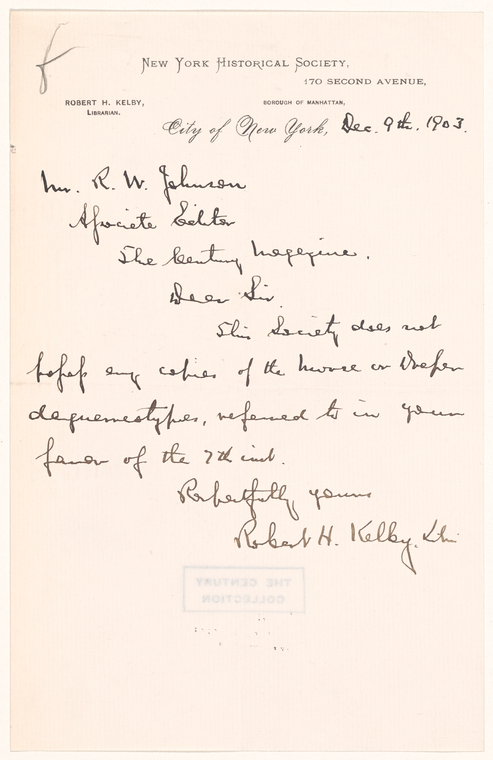 NEW YORK HISTORICAL SOCIETY,
170 SECOND AVENUE,
ROBERT H. KELBY,
LIBRARIAN.
BOROUGH OF MANHATTAN,
City of New York, Dec. 9th. 1903.
Mr. R. W. Johnson
Associate Editor
The Century Magazine.
Dear Sir.
This Society does not
possess any copies of the Morse or Draper
daguerreotypes, referred to in your
favor of the 7th inst.
Respectfully yours
Robert H. Kelby. Libn
THE CENTURY
COLLECTION